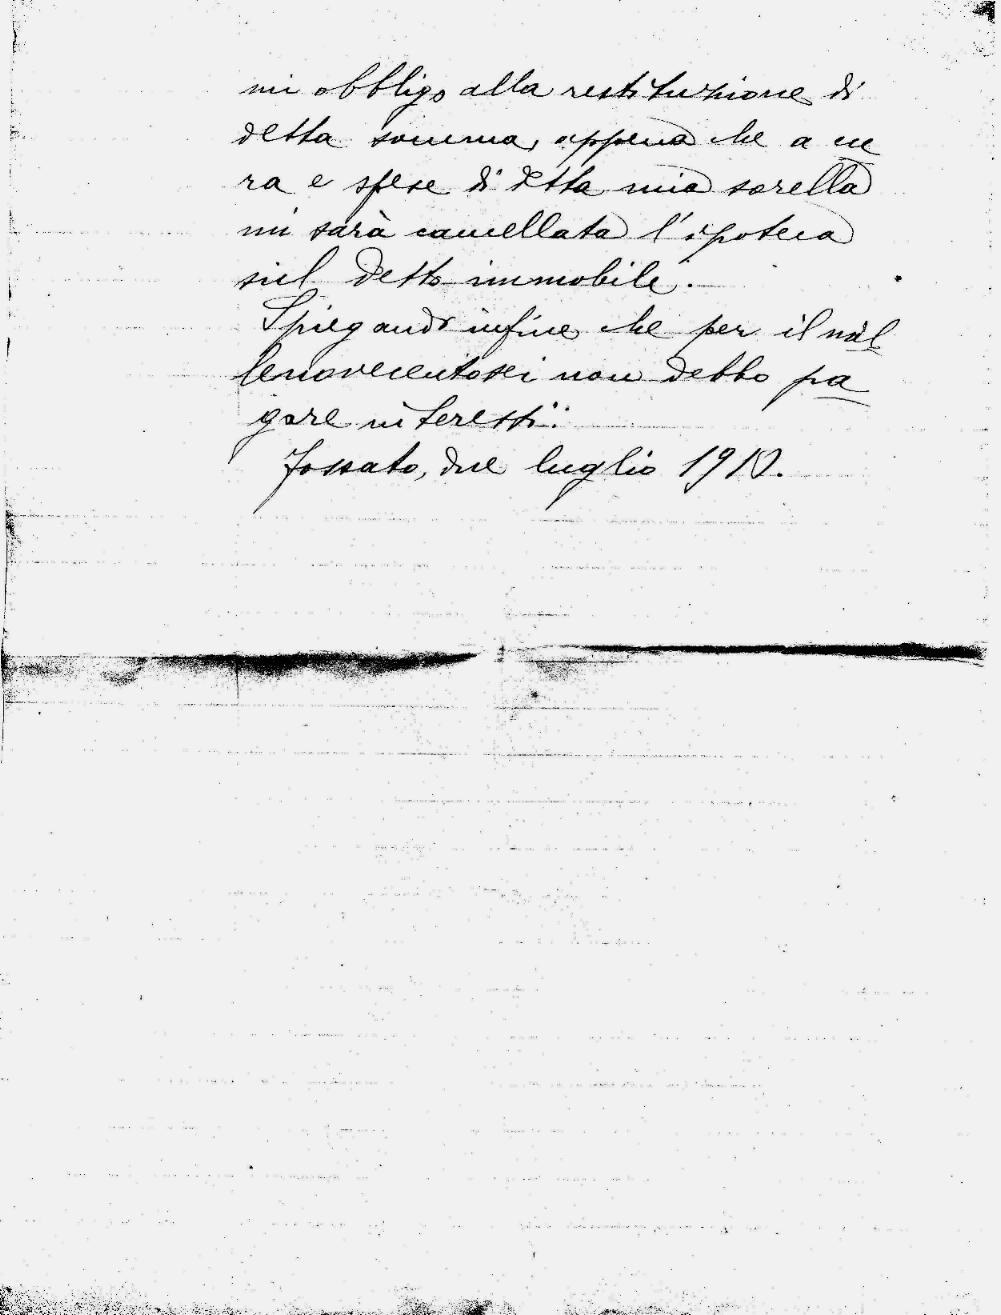 mi obbligo alla restituzione di
detta somma, appena che a cu
ra e spese di detta mia sorella
mi sarà cancellata l'ipoteca
sul detto immobile.
Spiegando infine che per il mil
lenovecentosei non debbo pa
gare interessi.
Fossato, due luglio 1910.